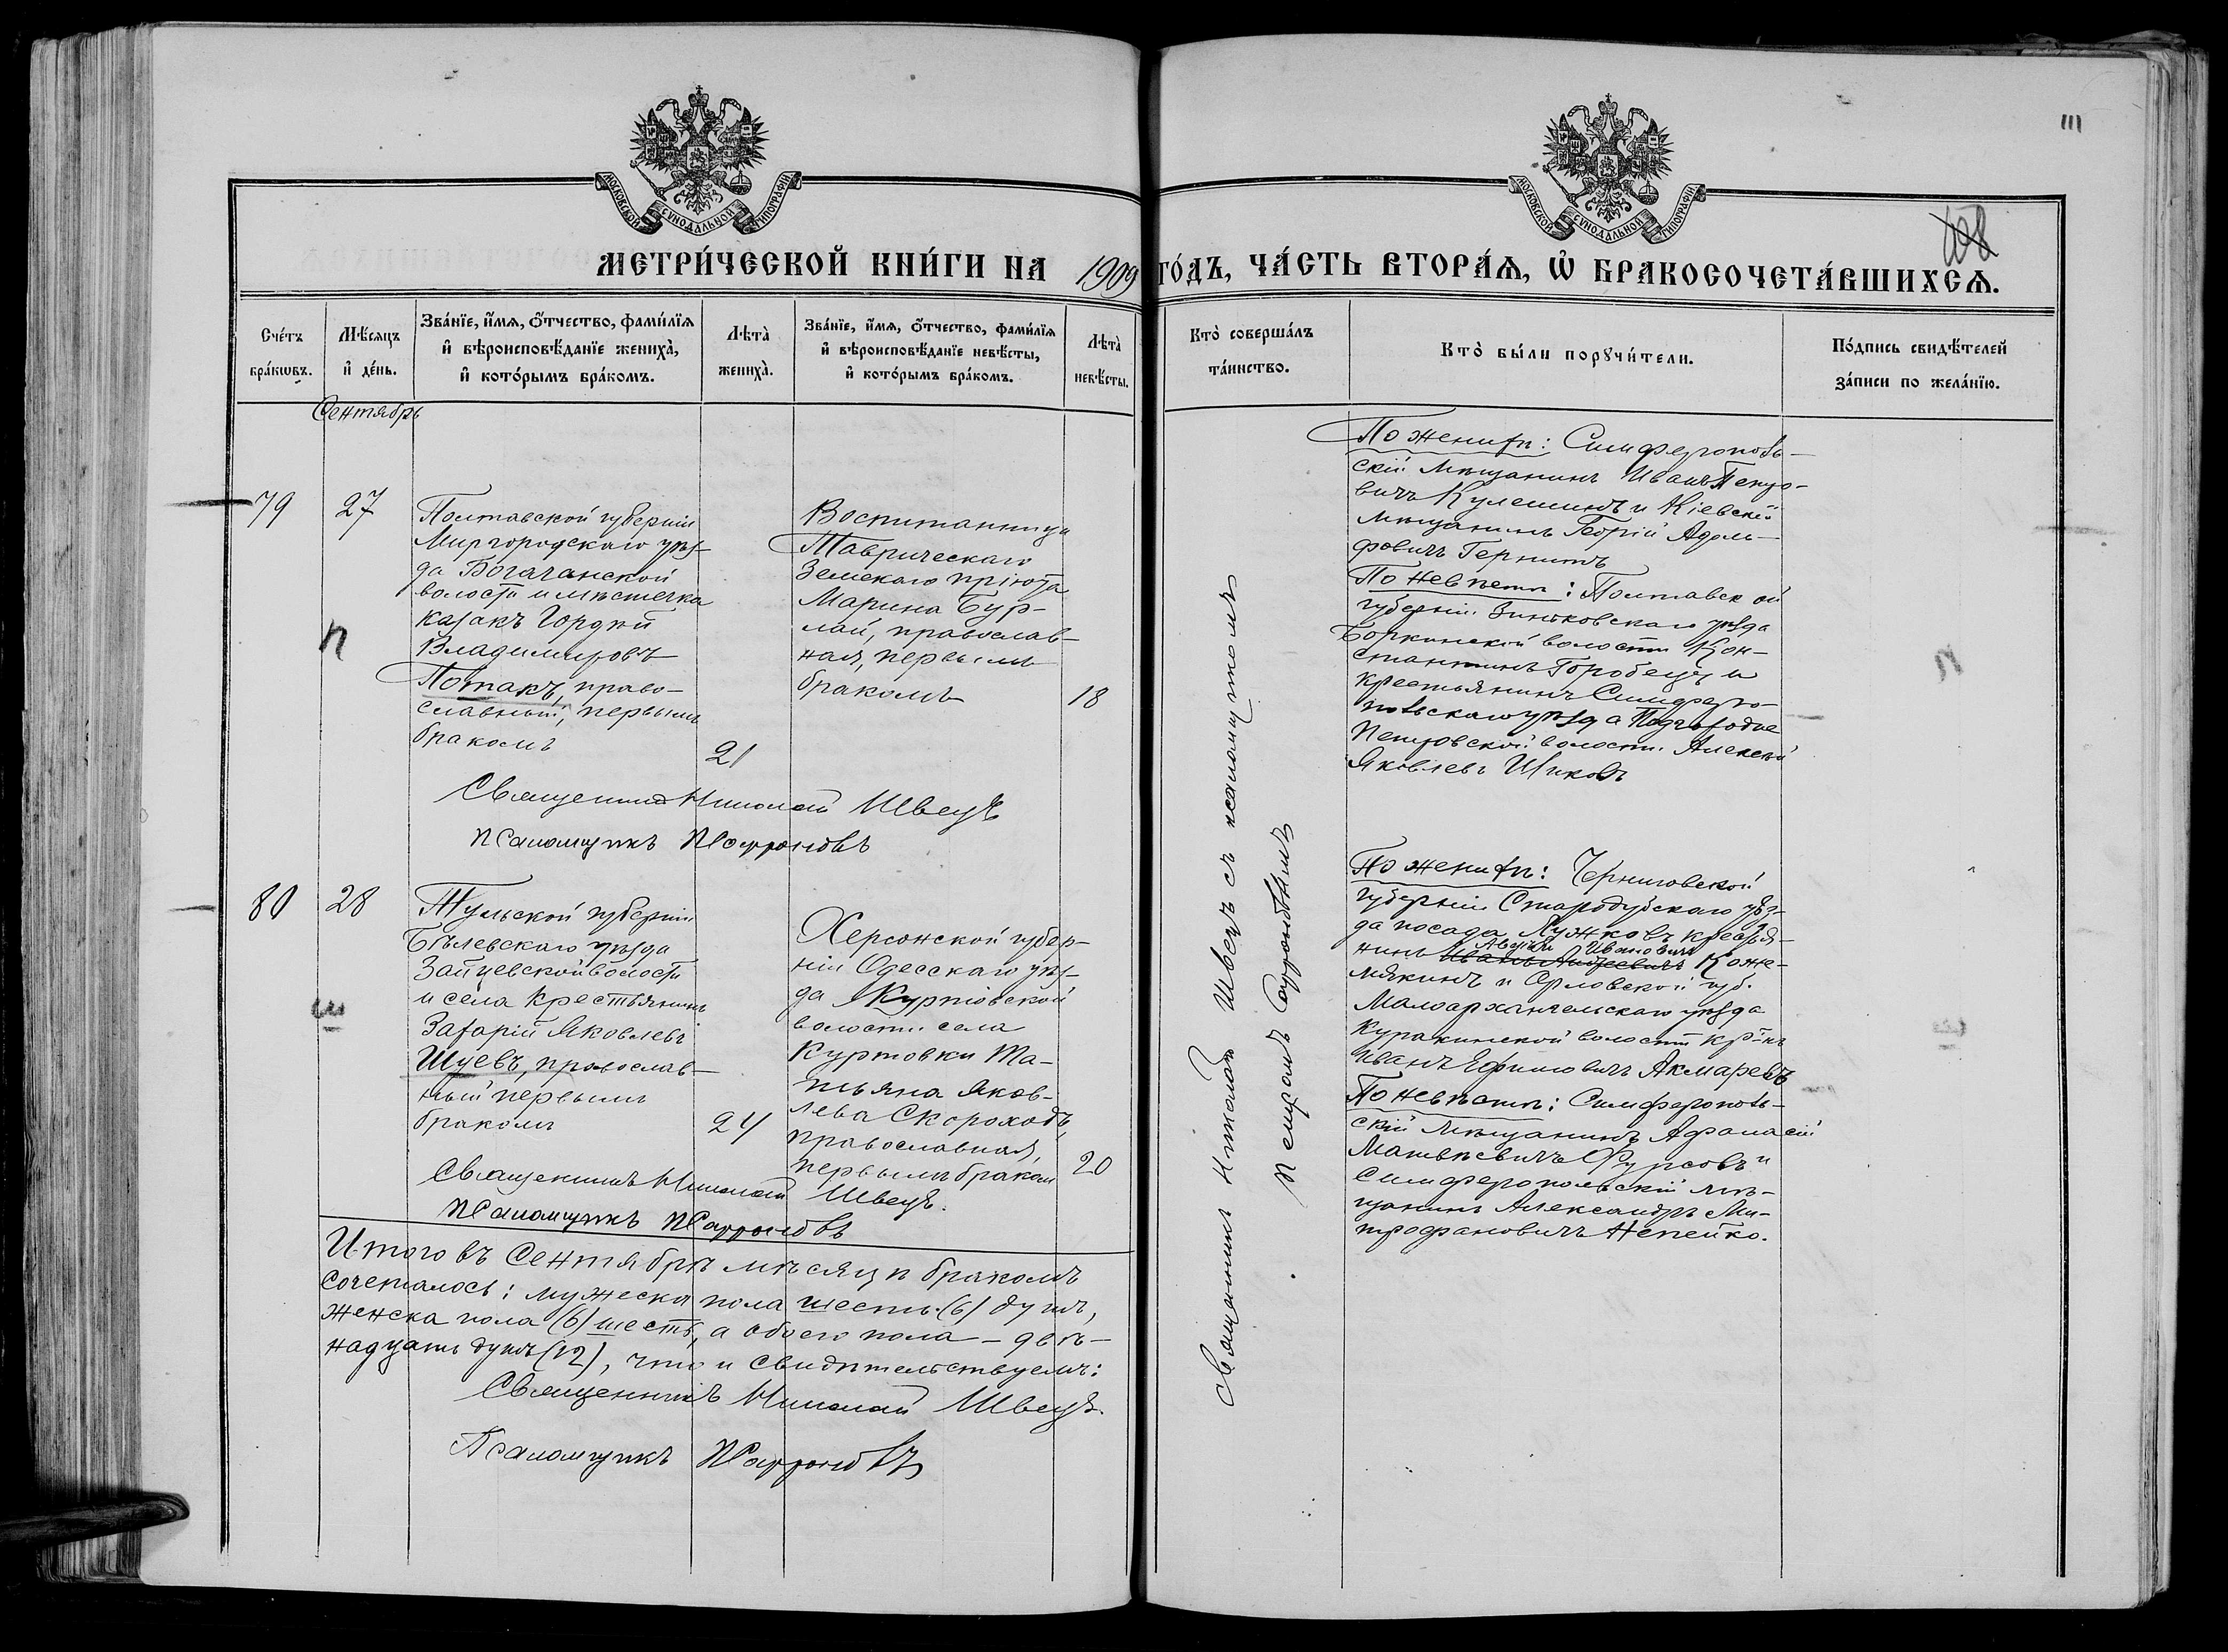 111
108
МОСКОВСКОЙ СѴНОДАЛЬНОЙ ТИПОГРАФІИ
МОСКОВСКОЙ СѴНОДАЛЬНОЙ ТИПОГРАФІИ
МЕТРИ́ЧЕСКОЙ КНИ́ГИ НА 1909 ГО́ДЪ, ЧА́СТЬ ВТОРА́Ѧ, Ѡ҆ БРАКОСОЧЕТА́ВШИХСѦ.
Сче́тъ
бра́кѡвъ.
Мѣ́сяцъ
и҆ де́нь.
Зва́нїе, и҆́мя, ѻ҆́тчество, фами́лїя
и҆ вѣроисповѣ́данїе жениха̀,
и҆ кото́рымъ бра́комъ.
Лѣта̀
жениха̀.
Зва́нїе, и҆́мя, ѻ҆́тчество, фами́лїя
и҆ вѣроисповѣ́данїе невѣ́сты,
и҆ кото́рымъ бра́комъ.
Лѣта̀
невѣ́сты.
Кто̀ соверша́лъ
та́инство.
Кто̀ бы́ли порꙋчи́тели.
По́дпись свидѣ́телей
за́писи по жела́нїю.
Сентябрь
79
27
п
Полтавской губерніи
Миргородскаго уѣз-
да Богачанской
волости и мѣстечка
казакъ Гордѣй
Владимировъ
Потакъ, право-
славный, первымъ
бракомъ
21
Воспитанница
Таврическаго
Земскаго пріюта
Марина Бур-
лай, православ-
ная, первымъ
бракомъ
18
Священникъ Николай Швецъ
Псаломщикъ
По женихѣ: Симферополь-
скій мѣщанинъ Иванъ Петро-
вичъ Кулешинъ и Кіевскій
мѣщанинъ Георгій Адоль-
фовичъ
По невѣстѣ: Полтавской
губерніи Зиньковскаго уѣзда
Боркинской волости Кон-
стантинъ Горобецъ и
крестьянинъ Симферо-
польскаго уѣзда Подгородне
Петровской волости Алексѣй
Яковлевъ
Священникъ Николай Швецъ съ псаломщикомъ
Петромъ
80
28
ш
Тульской губерніи
Бѣлевскаго уѣзда
Зайцевской волости
и села крестьянинъ
Захарій Яковлевъ
Шуевъ, православ-
ный первымъ
бракомъ
24
Херсонской губер-
ніи Одесскаго уѣз-
да Куртовской
волости села
Куртовки Та-
тьяна Яков-
лева Скороходъ,
православная,
первымъ бракомъ
20
Священникъ Николай Швецъ.
Псаломщикъ
По женихѣ: Черниговской
губерніи Стародубскаго уѣз-
да посада Лужковъ крестья-
нинъ Иванъ Андреевичъ Авдій Ивановичъ Коже-
мякинъ и Орловской губ.
Малоархангельскаго уѣзда
Куракинской волости кр-нъ
Иванъ Ефимовичъ Акмаревъ
По невѣстѣ: Симферополь-
скій мѣщанинъ Афанасій
Матвѣевичъ Фурсовъ и
Симферопольскій мѣ-
щанинъ Александръ Ми-
трофановичъ Непейко.
Итого въ Сентябрѣ мѣсяцѣ бракомъ
сочеталось: мужеска пола шесть (6) душъ,
женска пола (6) шесть, а обоего пола – двѣ-
надцать душъ (12), что и свидѣтельствуемъ:
Священникъ Николай Швецъ.
Псаломщикъ